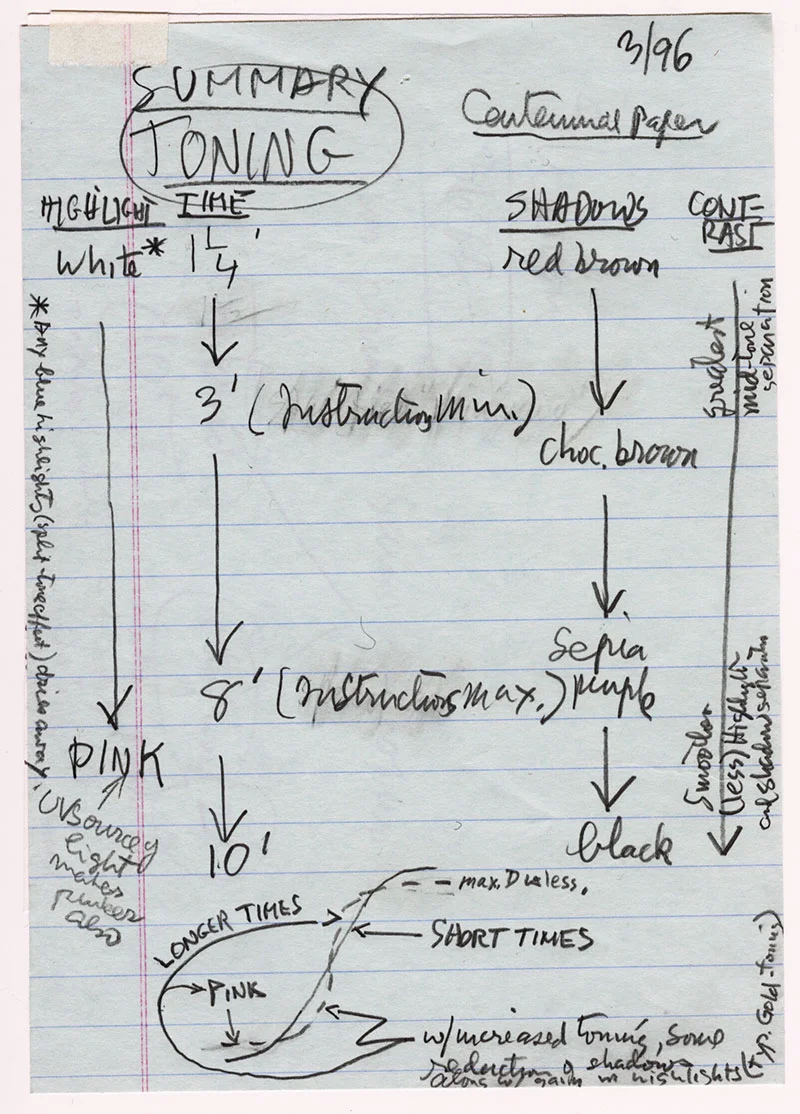 3/96
SUMMARY
TONING
Centennial Paper
HIGHLIGHT
TIME
SHADOWS
CONT-
RAST
White*
1 1/4'
red brown
3' (Instructions Min.)
choc. brown
sepia
8' (Instructions max.)
purple
PINK
10'
black
*Any blue highlights (split-tone effect) dries away.
UV source
light
makes
pinker
also
greatest
mid-tone
separation
Smoother
(less) Highlight
and shadow separation
max. D is less.
LONGER TIMES
SHORT TIMES
PINK
w/increased toning, some
reduction of shadows
along w/ gain in highlights (typ. Gold-Toning)